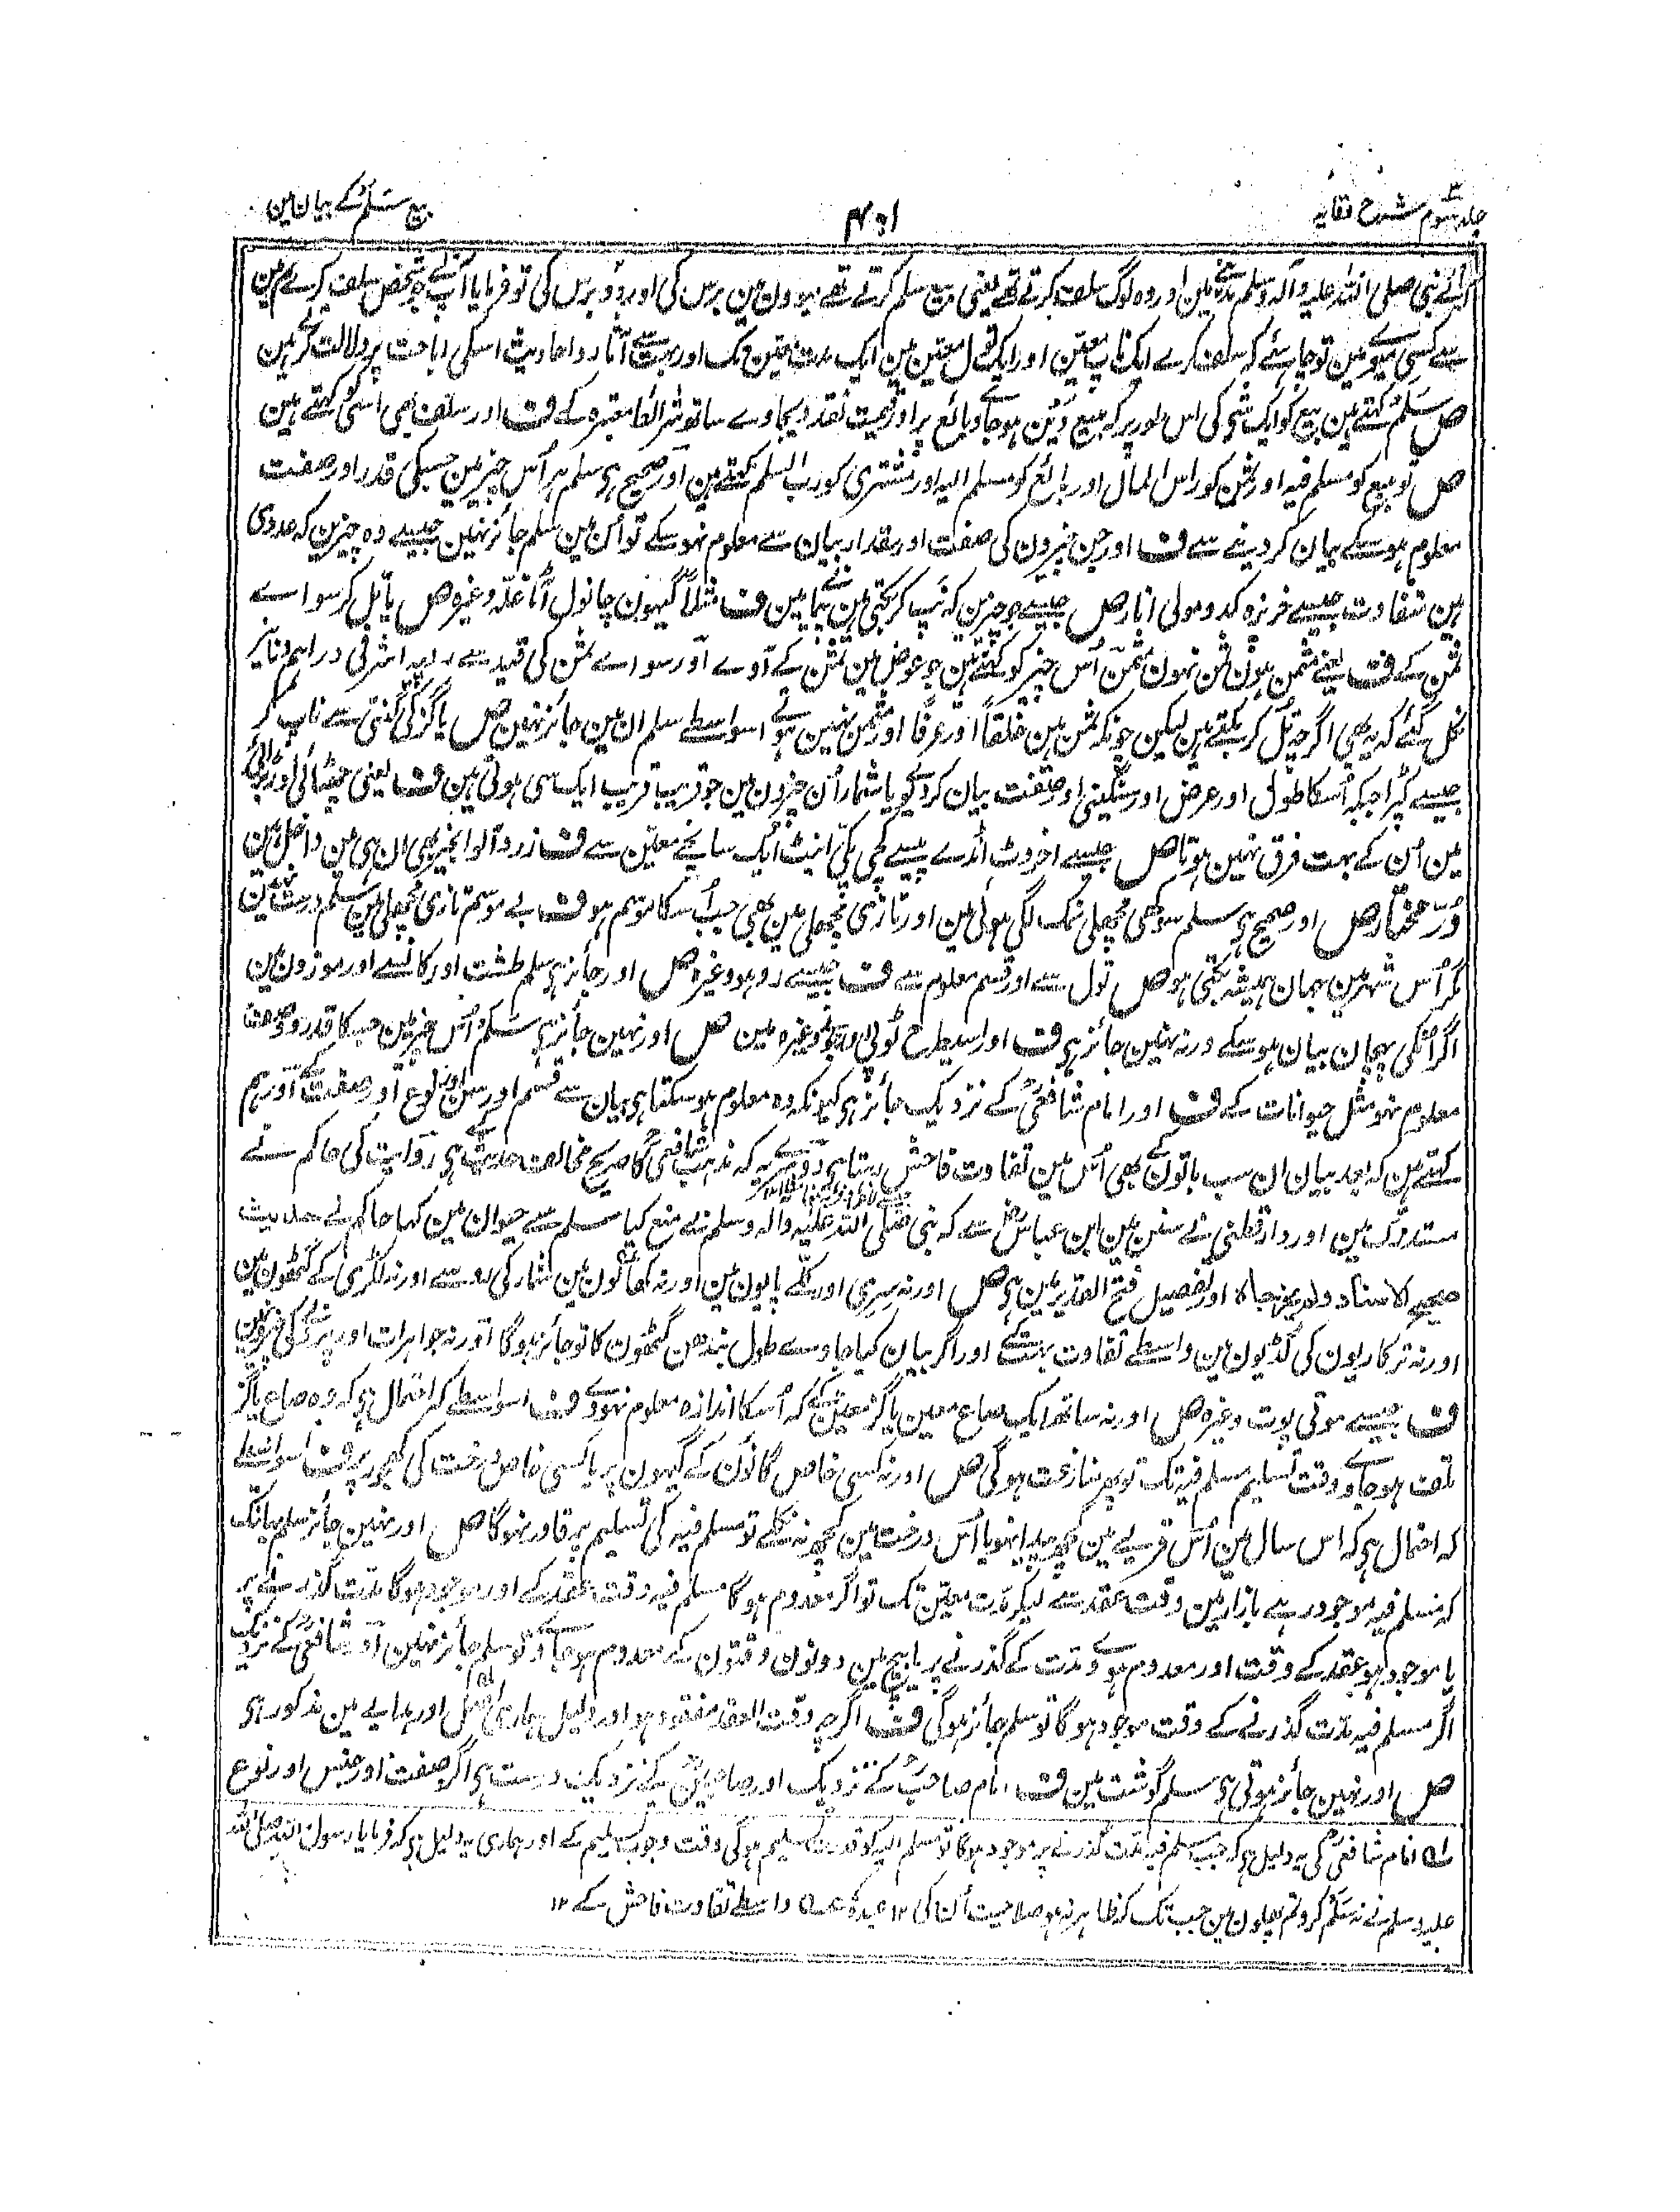 جلد سوم شرح وقایہ
بیع سلم کے بیان مین
آئے نبی صلی اللہ علیہ وآلہ وسلم مدینے مین اور وہ لوگ سلف کرتے تھے یعنی بیع سلم کرتے تھے میوون مین برس کی اور دو دو برس کی تو فرمایا آپ نے جو شخص سلف کرے تم مین
سے کسی میوے مین تو چاہئے کہ سلف کرے ایک ناپ معین اور ایک تول معین مین ایک مدت معین تک اور بہت سے آثار و احادیث اسکی اباحت پر دلالت کرتے ہین
ص سلم کہتے ہین بیع کو ایک شی کی اس طور پر کہ مبیع دین ہو جاوے بائع پر اور قیمت نقد دیجاوے ساتھ شرائط معتبرہ کے ف اور سلف بھی اسی کو کہتے ہین
ص تو مبیع کو مسلم فیہ اور ثمن کو راس المال اور بائع کو مسلم الیہ اور مشتری کو رب السلم کہتے ہین اور صحیح ہی سلم ہر اس چیز مین جسکی قدر اور صفت
معلوم ہوسکے بیان کر دینے سے ف اور جن چیزون کی صفت اور مقدار بیان سے معلوم نہو سکے تو اُن مین سلم جائز نہین جیسے وہ چیزین کہ عددی
ہین متفاوت جیسے خربزہ کدو مولی انار ص جیسے جو چیزین کہ نپ کر بکتی ہین پیمانے مین ف مثلاً گیہون چانول آٹا غلّہ وغیرہ ص یا تل کر سوا سے
ثمن کے ف یعنے مثمن ہون ثمن نہون مثمن اُس چیز کو کہتے ہین جو عوض مین ثمن کے آوے اور سوا سے ثمن کی قید سے روپیہ اشرفی دراہم دنانیر
نکل گئے کہ یہ بھی اگرچہ تل کر بکتے ہین لیکن چونکہ ثمن ہین خلقاً اور عرفاً اور مثمن نہین ہوتے اسواسطے سلم ان مین جائز نہین ص یا گز کی گنتی سے ناپ کر
جیسے کپڑا جبکہ اُسکا طول اور عرض اور سنگینی اور صفت بیان کر دیجاوے یا شمار اُن چیزون مین جو قریب قریب ایک سی ہوتی ہین ف یعنی چھٹائی اور بڑائی
مین اُن کے بہت فرق نہین ہوتا ص جیسے اخروٹ انڈے پیسے کچی پکّی اینٹ ایک سانچے معین سے ف زرد آلو انجیر بھی ان ہی مین داخل ہین
دُرّ مختار ص اور صحیح ہی سلم سوکھی مچھلی نمک لگی ہوئی مین اور تازی مچھلی مین بھی جب اُسکا موسم ہو ف بے موسم تازی مچھلی مین سلم درست نہین
مگر اُس شہر مین جہان ہمیشہ بکتی ہو ص تول سے اور قسم معلوم سے ف جیسے روہو وغیرہ ص اور جائز ہی سلم طشت اور کانسے اور موزون مین
اگر انکی پہچان بیان ہوسکے ورنہ نہین جائز ہی ف اور اسیطرح ٹوپی اور جوتے وغیرہ مین ص اور نہین جائز ہی سلم اُس چیز مین جسکا قدر و وصف
معلوم نہو مثل حیوانات کے ف اور امام شافعی کے نزدیک جائز ہی کیونکہ وہ معلوم ہو سکتا ہی بیان سے قسم اور سن اور نوع اور صفت کے اور ہم
کہتے ہین کہ بعد بیان ان سب باتون کے بھی اُس مین تفاوت فاحش رہتا ہی دوسرے یہ کہ مذہب شافعی کا صریح مخالف حدیث ہی روایت کی حاکم نے
مستدرک مین اور دارقطنی نے سنن مین ابن عباس سے کہ نبی صلی اللہ علیہ وآلہ وسلم نے منع کیا سلم سے حیوان مین کہا حاکم نے حدیث
صحیح الاسناد ولم یخرجاہ اور تفصیل فتح القدیر مین ہی ص اور نہ سری اور کلے پایون مین اور نہ کھالون مین شمار کی رو سے اور نہ لکڑی کے گٹھون مین
اور نہ ترکاریون کی گڈیون مین واسطے تفاوت بہت کے اور اگر بیان کیا جاوے طول بندھن گٹھون کا تو جائز ہوگا اور نہ جواہرات اور پرونے کی چیزون مین
ف جیسے موتی پوت وغیرہ ص اور نہ ساتھ ایک صاع معین یا گز معین کے کہ اُسکا اندازہ معلوم نہووے ف اسواسطے کہ احتمال ہی کہ وہ صاع یا گز
تلف ہو جاوے وقت تسلیم مسلم فیہ تک تو پھر منازعت ہوگی ص اور نہ کسی خاص گانون کے گیہون پر یا کسی خاص درخت کی کھجور پر ف اسواسطے
کہ احتمال ہی کہ اس سال مین اُس قریے مین کچھ پیدا نہو یا اُس درخت مین کچھ نہ نکلے تو مسلم فیہ کی تسلیم پر قادر نہوگا ص اور نہین جائز سلم یہانتک
کہ مسلم فیہ موجود رہے بازار مین وقت عقد سے لیکر مدت معین تک تو اگر معدوم ہوگا مسلم فیہ وقت عقد کے اور موجود ہوگا مدت گذرنے پر
یا موجود ہو عقد کے وقت اور معدوم ہووے مدت کے گذرنے پر یا بیچ مین دونون وقتون کے معدوم ہو جاوے تو سلم جائز نہین اور شافعی کے نزدیک
اگر مسلم فیہ مدت گذرنے کے وقت موجود ہوگا تو سلم جائز ہوگی ف اگرچہ وقت العقد مفقود ہو اور دلیل ہماری اصل اور ہدایے مین مذکور ہی
ص اور نہین جائز ہوتی ہی سلم گوشت مین ف امام صاحب کے نزدیک اور صاحبین کے نزدیک درست ہی اگر صفت اور جنس اور نوع
امام شافعی کی یہ دلیل ہی کہ جب مسلم فیہ مدت گذرنے پر موجود ہوگا تو مسلم الیہ کو قدرت تسلیم ہوگی وقت وجوب تسلیم کے اور ہماری یہ دلیل ہی کہ فرمایا رسول اللہ صلی اللہ
علیہ وسلم نے نہ سلم کرو تم پھلون مین جب تک کہ ظاہر نہ ہو صلاحیت اُن کی ۱۲ واسطے تفاوت فاحش کے ۱۲